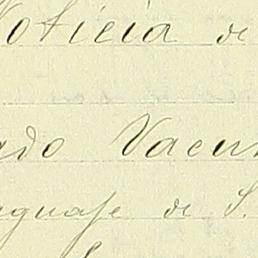 Noticia de
ado Vacun
guaje de S.